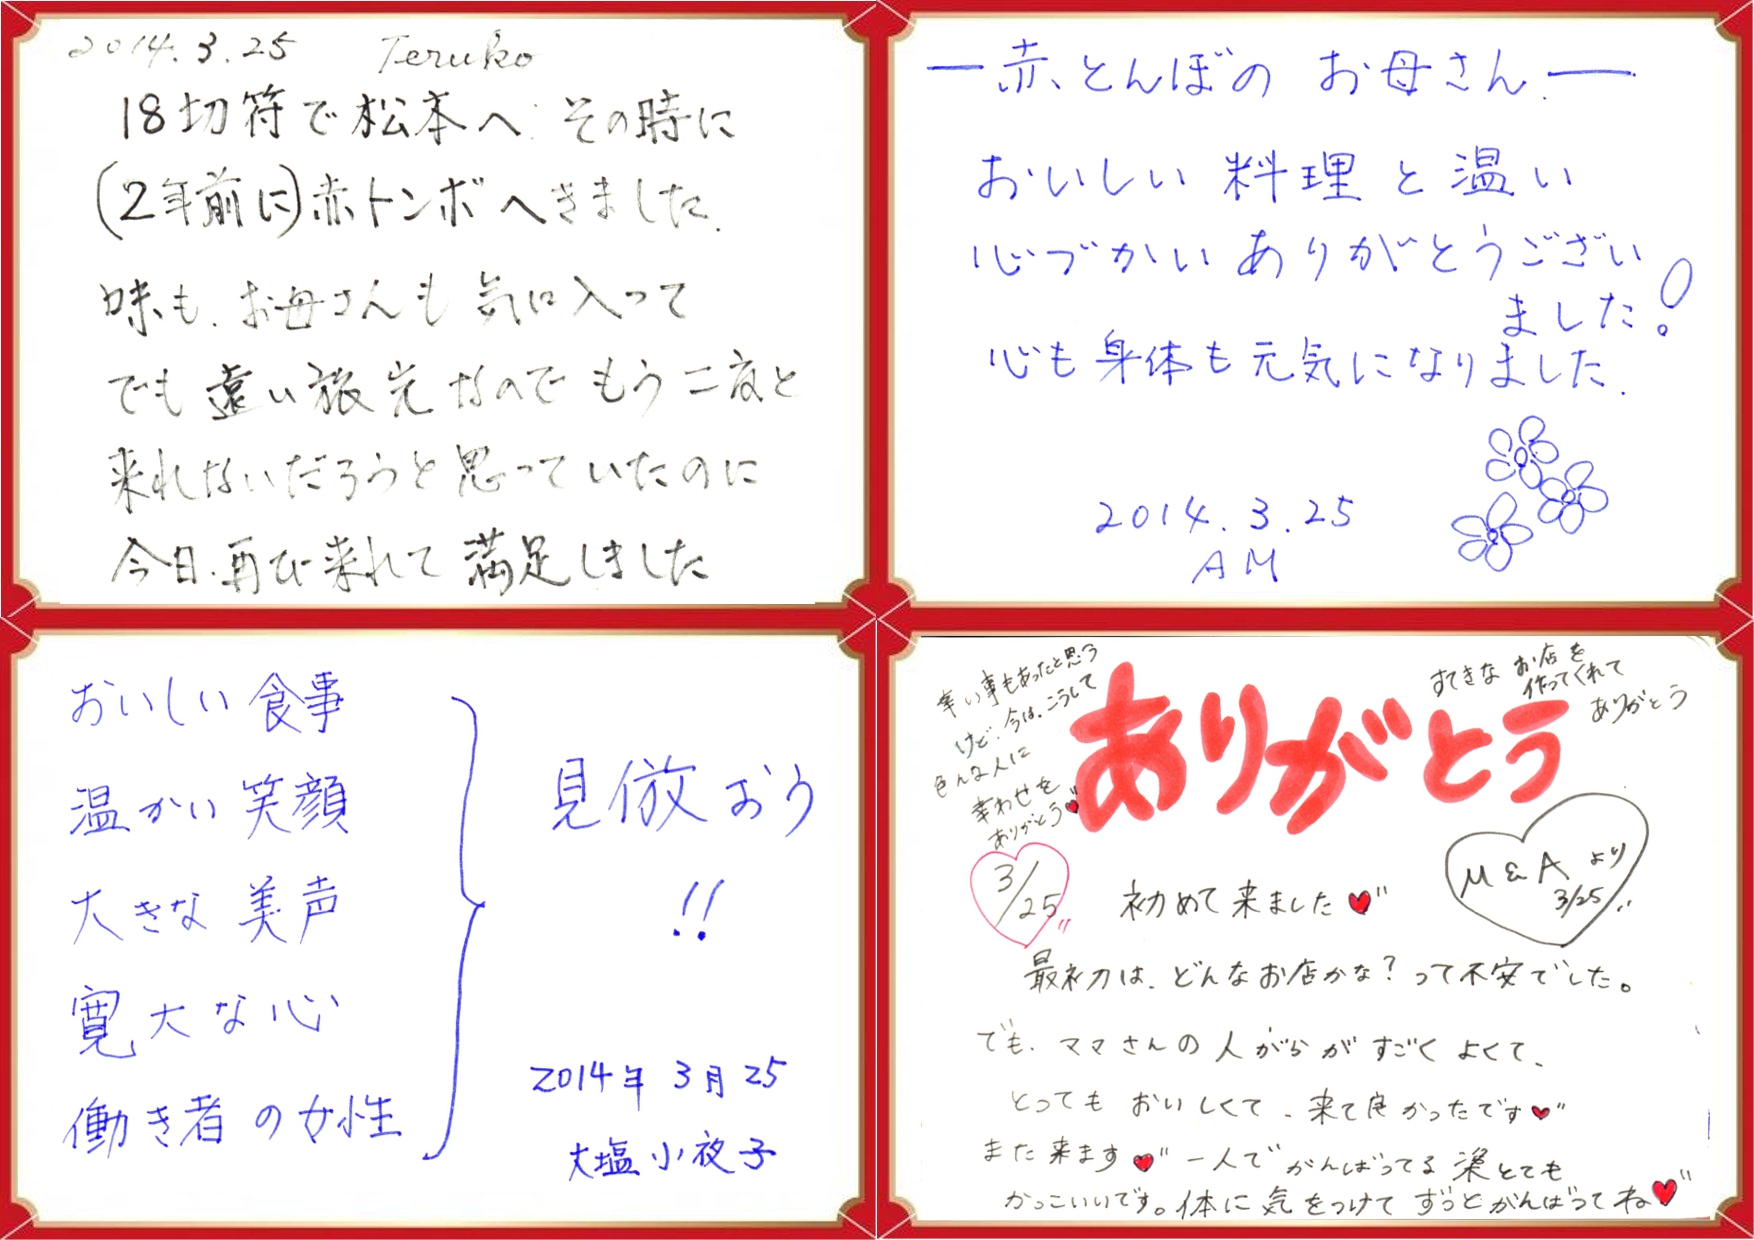 2014.3.25 Teruko
18切符で松本へ その時に
(2年前に)赤トンボへきました.
味も.お母さんも気に入って
でも遠い旅先なのでもう二度と
来れないだろうと思っていたのに
今日.再び来れて満足しました
―赤とんぼの お母さん.―
おいしい 料理と温い
心づかい ありがとうござい
ました!
心も身体も元気になりました.
2014.3.25
AM
おいしい 食事
温かい 笑顔
大きな 美声
寛大な心
働き者の女性
見倣おう
!!
2014年 3月 25
大塩 小夜子
辛い事もあったと思う
けど、今は、こうして
色んな人に
幸わせを
ありがとう♥
ありがとう
すてきな お店を
作ってくれて
ありがとう
3/25
M&Aより
3/25
初めて来ました♥
最初は、どんなお店かな?って不安でした。
でも、ママさんの人がらがすごくよくて、
とってもおいしくて、来て良かったです♥
また来ます♥一人でがんばってる姿とても
かっこいいです。体に気をつけてずっとがんばってね♥